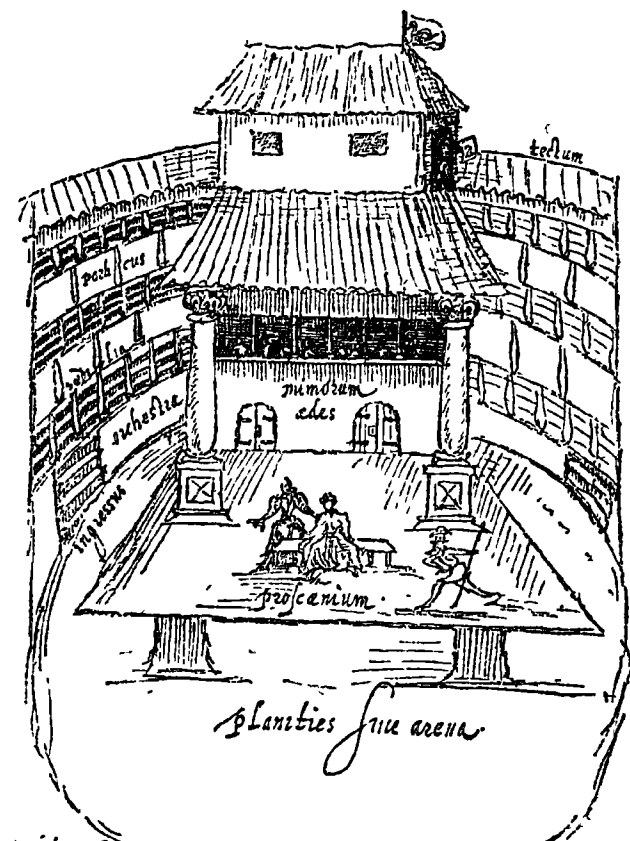 tectum
porticus
sedilia
orchestra
mimorum
ædes
ingressus
proscænium.
planities siue arena.